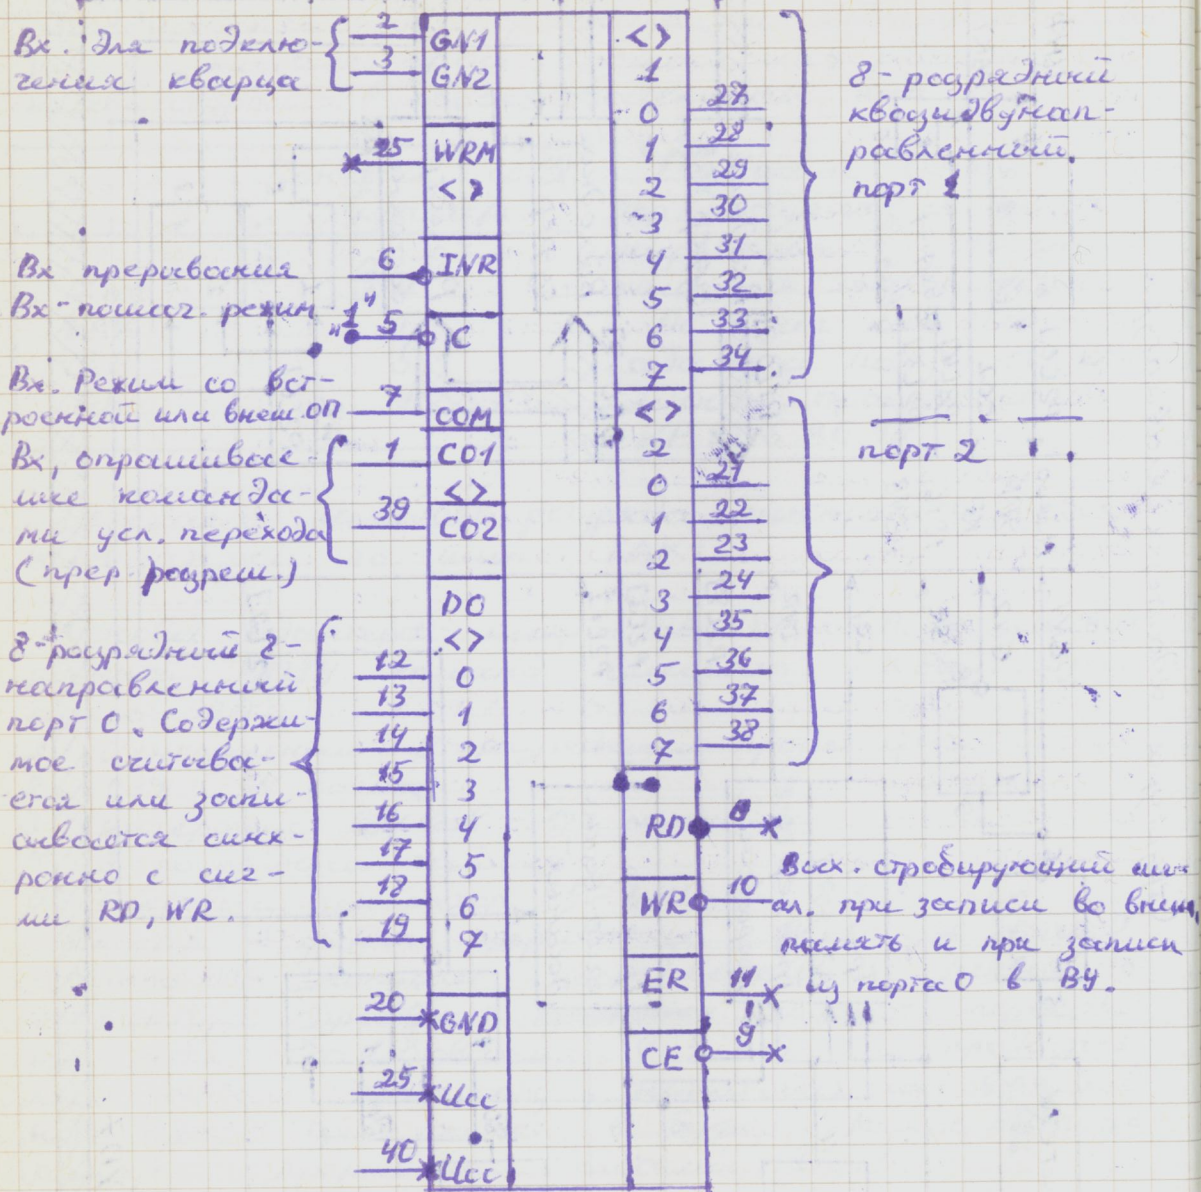 Вх. для подклю-
чения кварца
2
3
GN1
GN2
25
WRM
<>
Вх прерывания
6
INR
Вх-пошаг. режим
"1"
5
С
Вх. Режим со вст-
роенной или внеш. ОП
7
COM
Вх, опрашивае-
мые команда-
ми усл. перехода
(прер. разреш.)
1
CO1
<>
39
CO2
DO
<>
8-разрядный 2-
направленный
порт 0. Содержи-
мое считыва-
ется или запи-
сывается синх-
ронно с сиг-
ми RD, WR.
12 0
13 1
14 2
15 3
16 4
17 5
18 6
19 7
20 GND
25 Ucc
40 Ucc
<>
1
0 27
1 28
2 29
3 30
4 31
5 32
6 33
7 34
8-разрядный
квазидвунап-
равленный.
порт 1
<>
2
0 21
1 22
2 23
3 24
4 35
5 36
6 37
7 38
порт 2
RD
WR 10
Вых. стробирующий
при записи во внеш.
память и при записи
из порта 0 в ВУ.
ER 11
CE 9